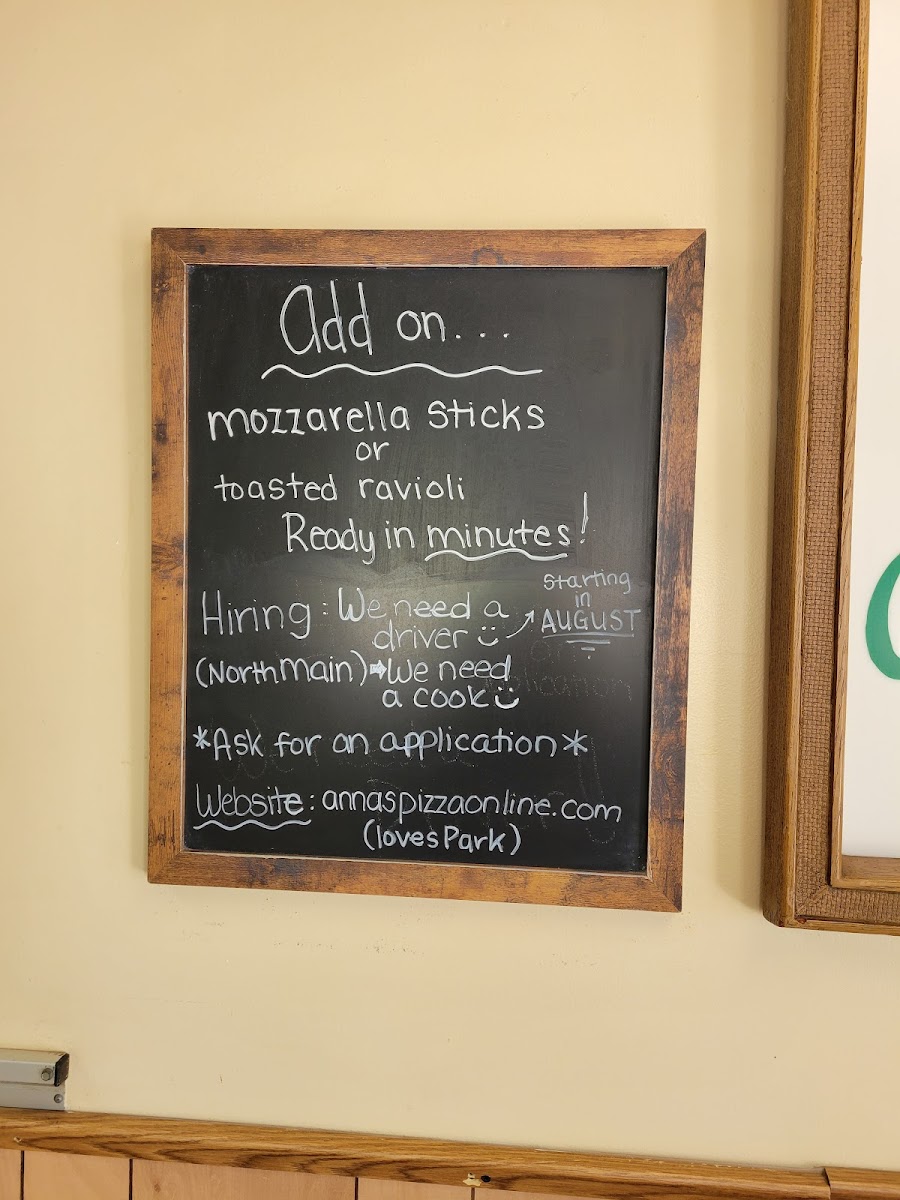 add on...
mozzarella sticks
or
toasted ravioli
Ready in minutes!
Hiring: We need a
driver
Starting
in
AUGUST
(North Main) ➡ We need
a cook
*Ask for an application*
Website: annaspizzaonline.com
(loves Park)